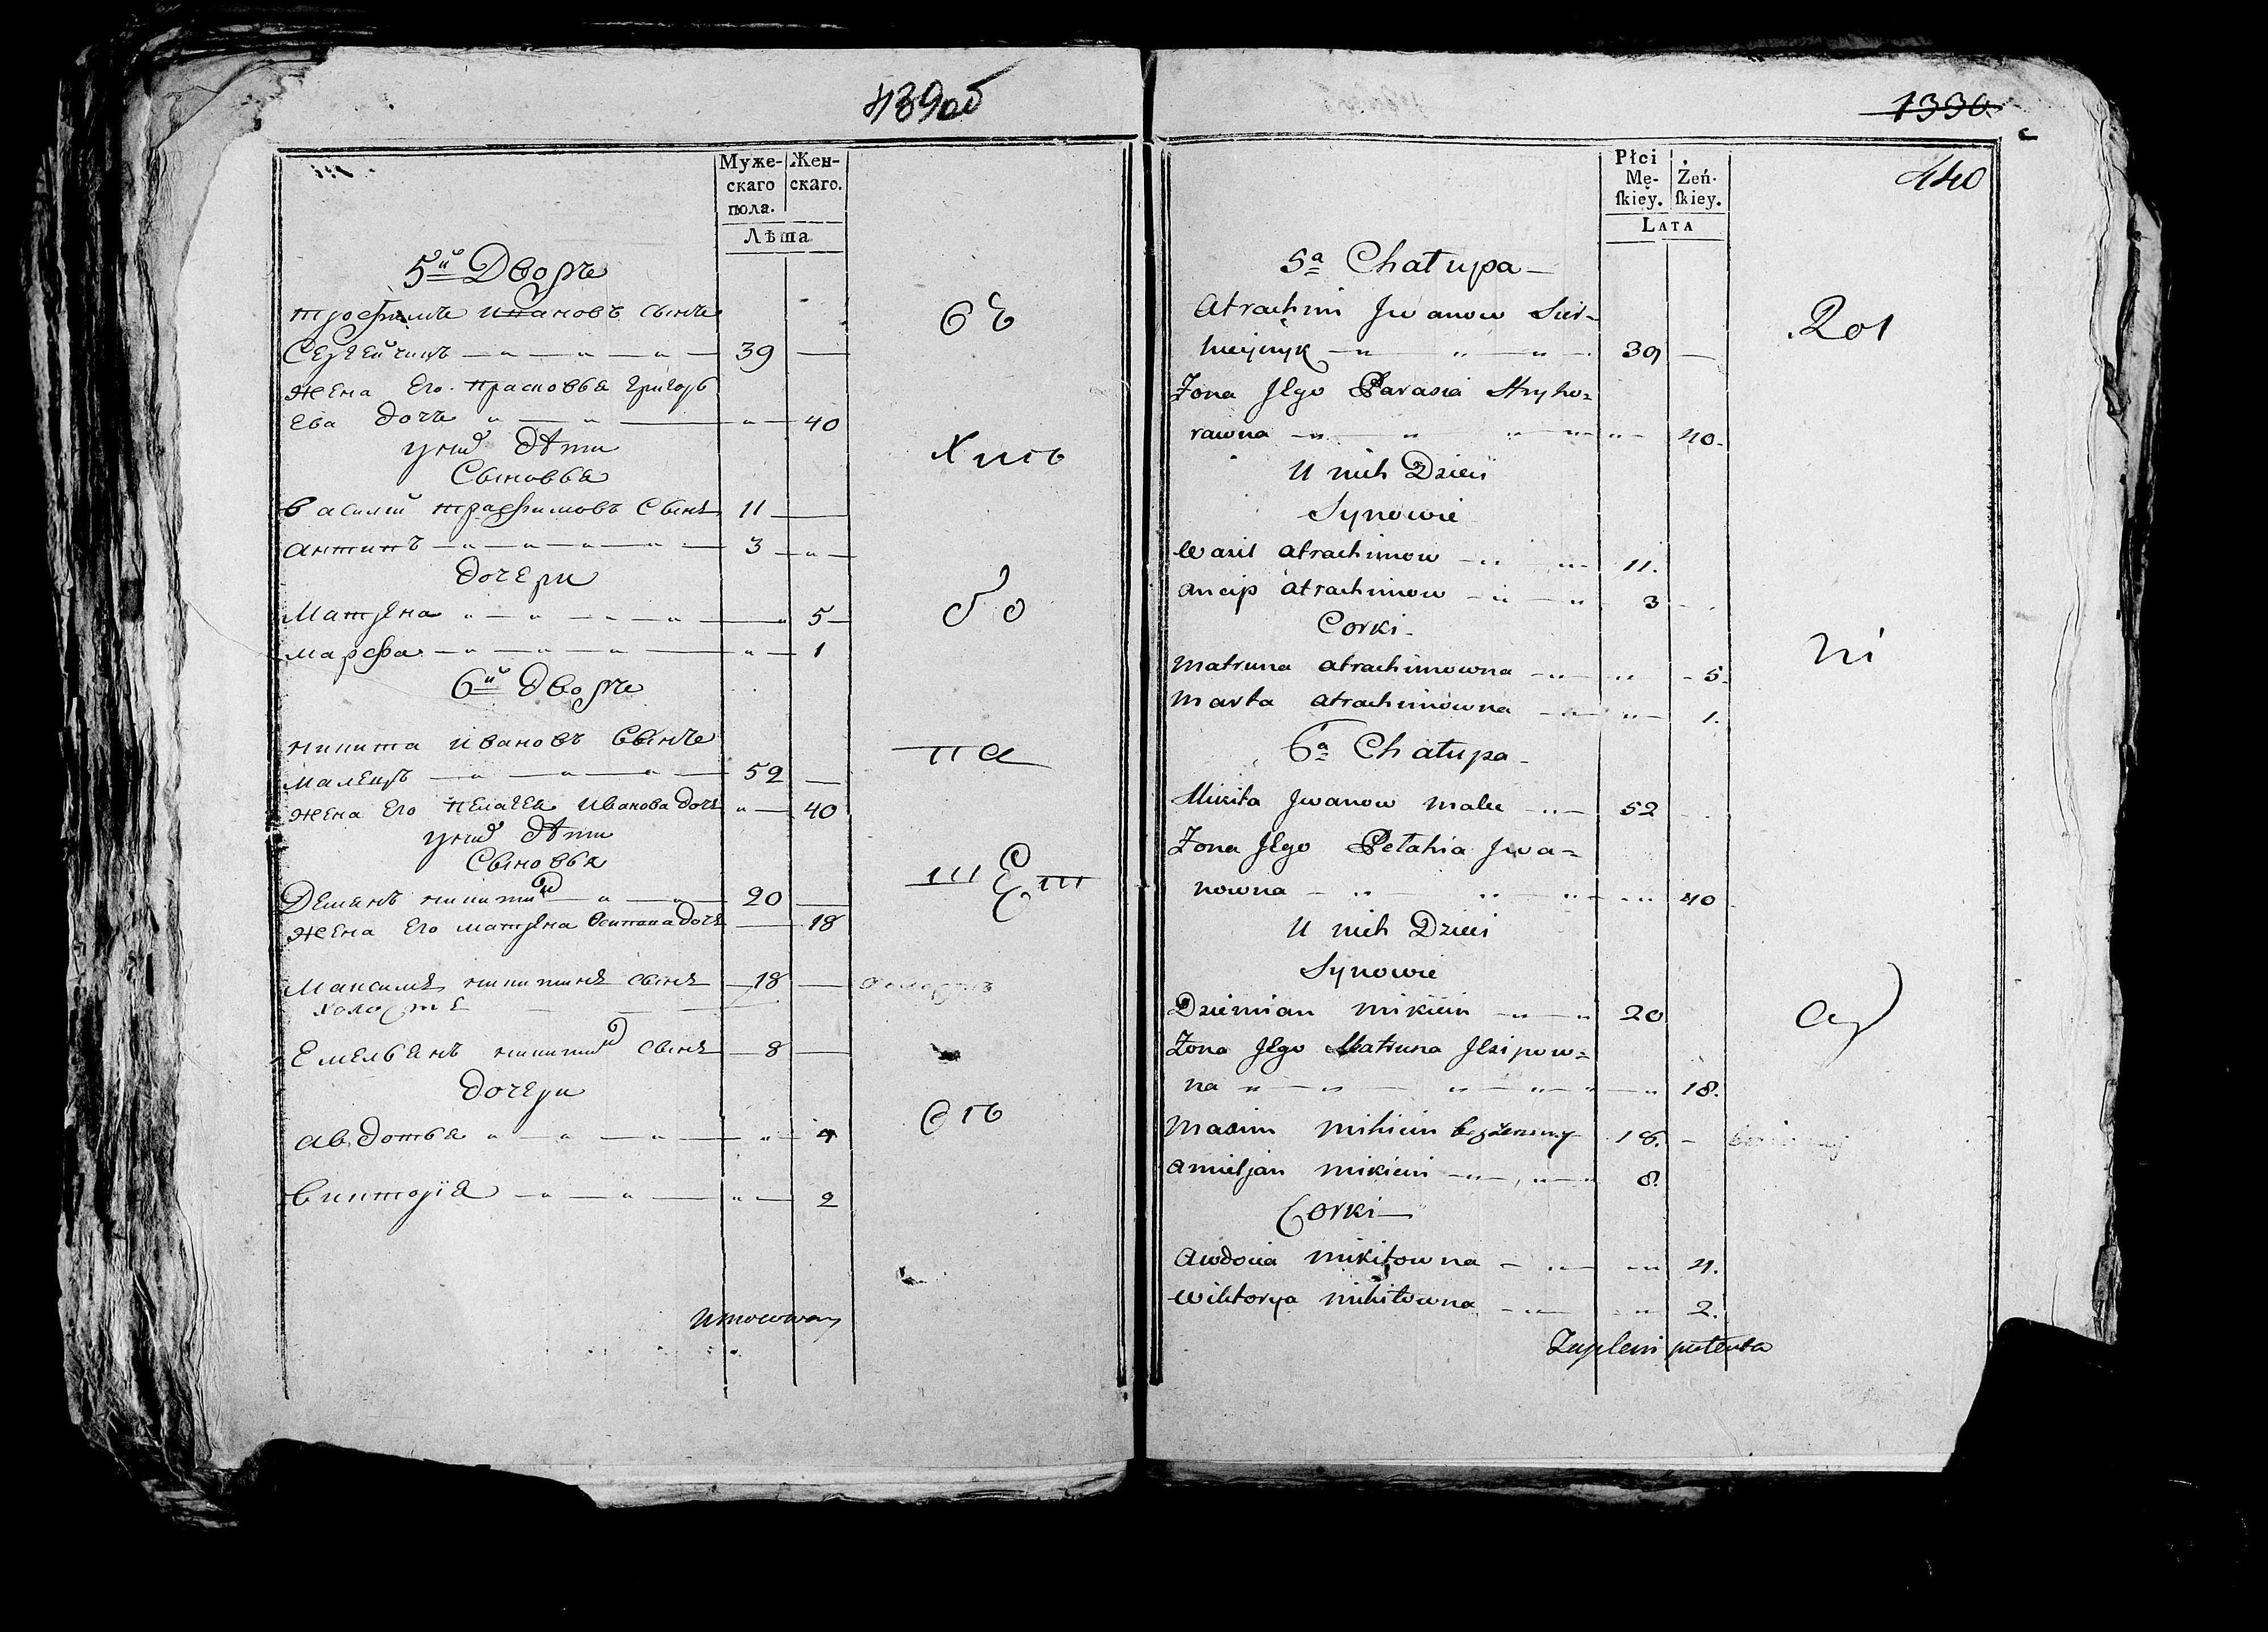 439об
Муже-
скаго
пола.
Жен-
скаго.
Лѣта
5й Дворъ
трофимъ ивановъ сынъ
Сергейчикъ 39
жена его прасковья григорь
ева дочь 40
у них дѣти
Сыновья
василий трафимовъ Сынъ 11
антипъ 3
дочери
Матрена 5
марфа 1
6й дворъ
никита ивановъ Сынъ
малецъ 52
жена его пелагея иванова дочь 40
у них дѣти
Сыновья
Демянъ никитин 20
жена его матрена осипова дочь 18
Максимъ никитинъ сынъ 18
холостъ
Емельянъ никитин сынъ 8
дочери
авдотья 4
виктория 2
бЕ
хись
бо
па
шЕш
сть
1330
440
Płci
Mę-
ſkiey.
Żeń-
ſkiey.
Lata
5a Chałupa
Atrachim Jwanow Sier-
39
Zona Jego Parasia Hryho-
rawna 40
U nich Dzieci
Synowie
Wasil atrachimow 11.
Ancip atrachimow 3
Corki
Matruna atrachimowna 5
Marta atrachimowna 1.
6a Chałupa
Mikita Jwanow malec 52
Zona Jego Pelahia Jwa-
nowna 40
U nich Dzieci
Synowie
Dziemian mikicin 20
Zona Jego Matruna Jesipow-
na 18.
Maxim mikicin bezżenny 18.
Amieljan mikicin 8.
Corki
Awdocia mikitowna 4.
Wiktorya mikitowna 2.
201
ni